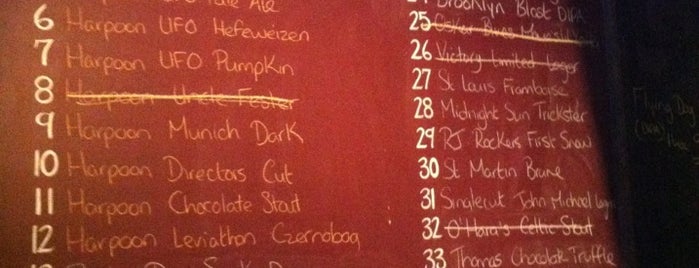 Ale
6 Harpoon UFO Hefeweizen
7 Harpoon UFO Pumpkin
8 Harpoon Uncle Fester
9 Harpoon Munich Dark
10 Harpoon Directors Cut
11 Harpoon Chocolate Stout
12 Harpoon Leviathon Czernobog
13
24 Brooklyn Blast DIPA
25 Oskar Blues
26 Victory Limited Lager
27 St Louis Framboise
28 Midnight Sun Trickster
29 RJ Rockers First Snow
30 St Martin Brune
31 Singlecut John Michael
32 O'Hara's Celtic Stout
33 Thomas Chocolate Truffle
Flying